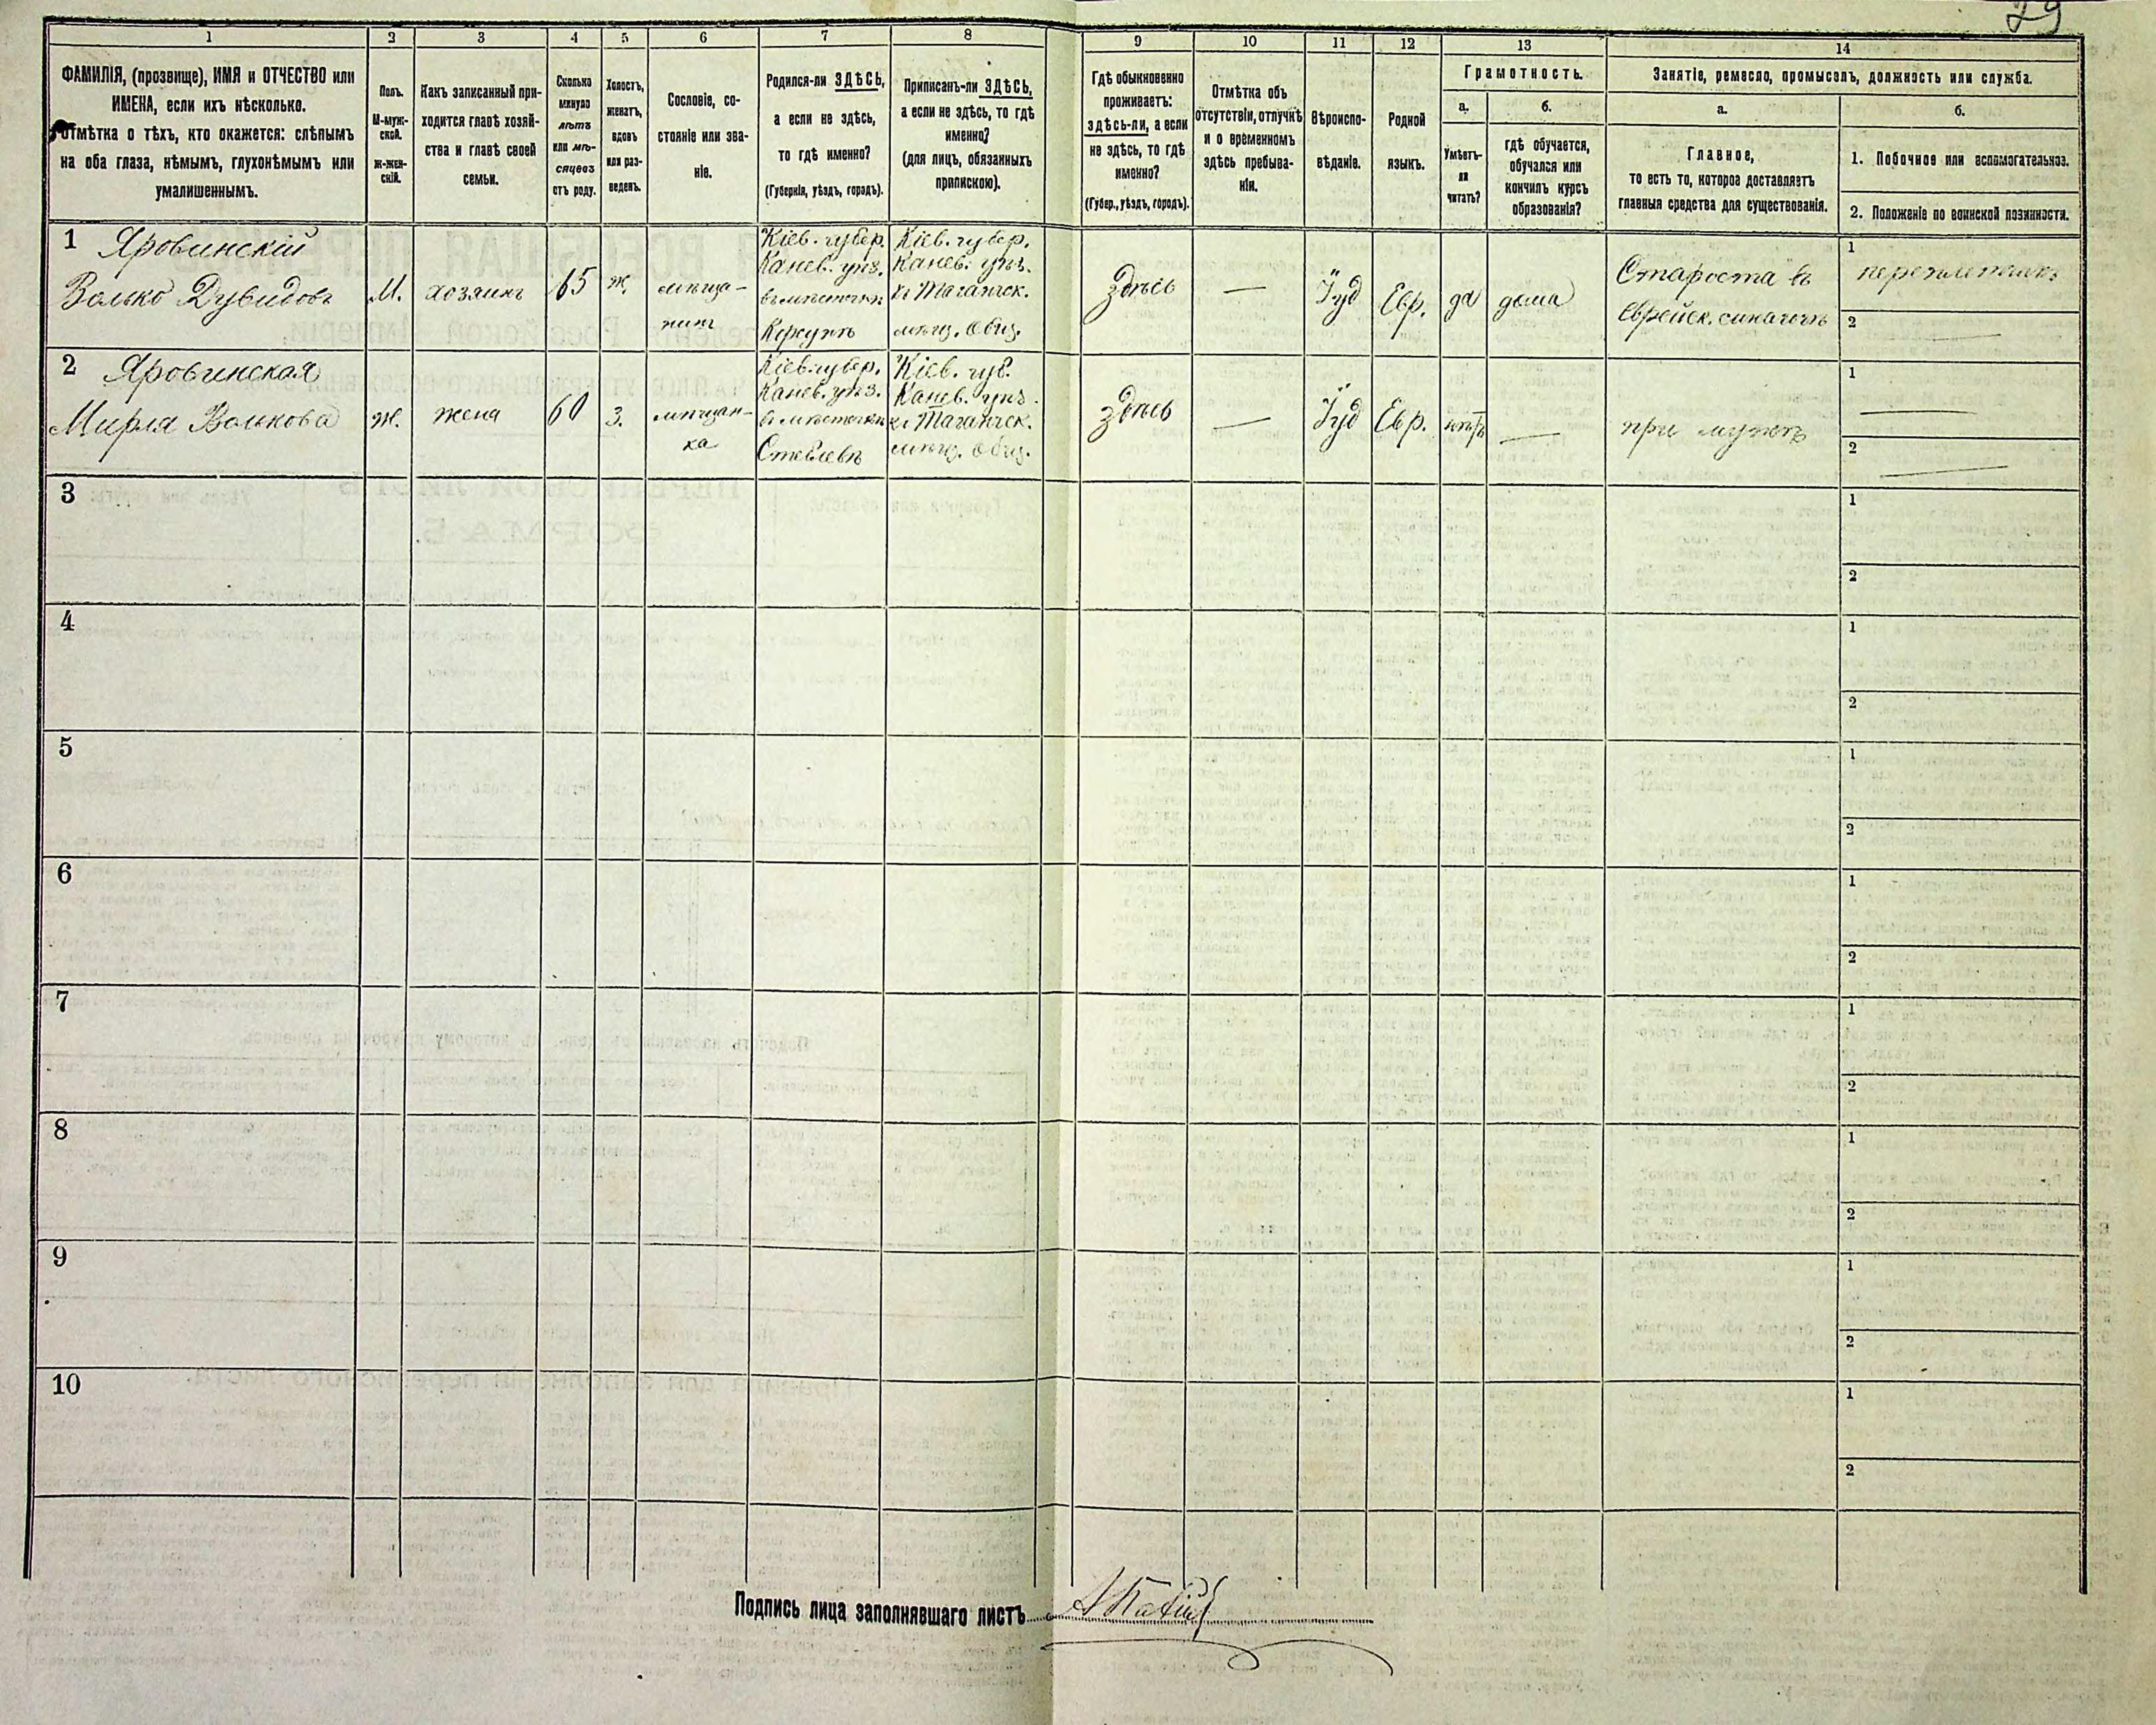 29
1 2 3 4 5 6 7 8 9 10 11 12 13 14
ФАМИЛІЯ, (прозвище), ИМЯ и ОТЧЕСТВО или
ИМЕНА, если ихъ нѣсколько.
Отмѣтка о тѣхъ, кто окажется: слѣпымъ
на оба глаза, нѣмымъ, глухонѣмымъ или
умалишеннымъ.
Полъ.
М-муж-
ской.
Ж-жен-
скій.
Какъ записанный при-
ходится главѣ хозяй-
ства и главѣ своей
семьи.
Сколько
минуло
лѣтъ
или мѣ-
сяцевъ
отъ роду.
Холостъ,
женатъ,
вдовъ
или раз-
веденъ.
Сословіе, со-
стояніе или зва-
ніе.
Родился-ли ЗДѢСЬ,
а если не здѣсь,
то гдѣ именно?
(Губернія, уѣздъ, городъ).
Приписанъ-ли ЗДѢСЬ,
а если не здѣсь, то гдѣ
именно?
(для лицъ, обязанныхъ
припискою).
Гдѣ обыкновенно
проживаетъ:
здѣсь-ли, а если
не здѣсь, то гдѣ
именно?
(Губер., уѣздъ, городъ).
Отмѣтка объ
отсутствіи, отлучкѣ
и о временномъ
здѣсь пребыва-
ніи.
Вѣроиспо-
вѣданіе.
Родной
языкъ.
Грамотность.
а.
Умѣетъ-
ли
читать?
б.
гдѣ обучается,
обучался или
кончилъ курсъ
образованія?
Занятіе, ремесло, промыселъ, должность или служба.
а.
Главное,
то есть то, которое доставляетъ
главныя средства для существованія.
б.
1. Побочное или вспомогательное.
2. Положеніе по воинской повинности.
1 Яровинскій
Волько Дувидовъ
М.
хозяинъ
65
ж.
мѣща-
нинъ
Кіев. губер.
Канев. уѣз.
въ мѣстечкѣ
Корсунѣ
Кіев. губер.
Канев. уѣз.
къ Таганчск.
мѣщ. Общ.
здѣсь
—
Іуд
Евр.
да
дома
Староста въ
Еврейск. синагогѣ
1 переплетчикъ
2 —
2 Яровинская
Мирля Волькова
Ж.
жена
60
з.
мѣщан-
ка
Кіев. губер.
Канев. уѣз.
въ мѣстечкѣ
Стеблевѣ
Кіев. губ.
Канев. уѣз.
къ Таганчск.
мѣщ. Общ.
здѣсь
—
Іуд
Евр.
нѣтъ
—
при мужѣ
1 —
2 —
3
1
2
4
1
2
5
1
2
6
1
2
7
1
2
8
1
2
9
1
2
10
1
2
Подпись лица заполнявшаго листъ